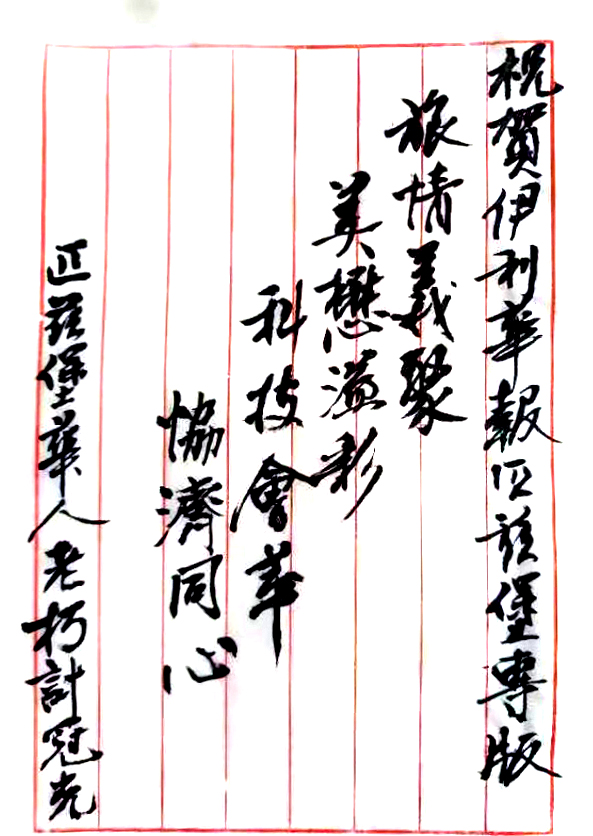 祝賀伊利華報匹茲堡專版
旅情義聚
美懋溢彩
科技會華
協濟同心
匹茲堡華人老朽計冠光